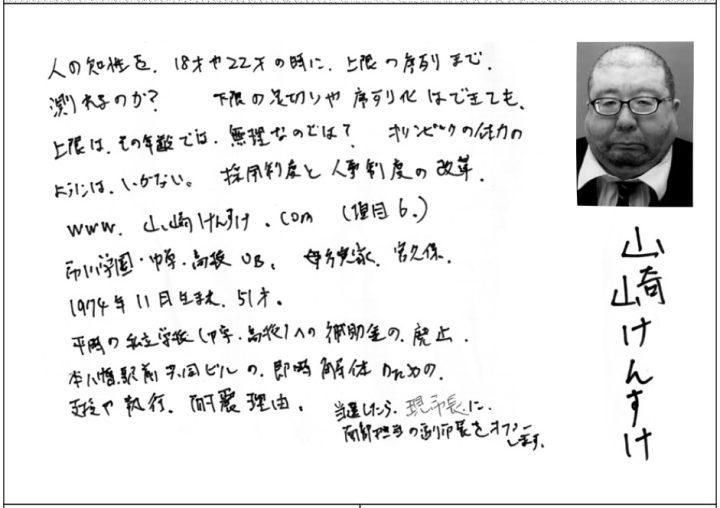 人の知性を、18才や22才の時に、上限の序列まで、
測れるのか? 下限の足切りや序列化はできても、
上限は、その年齢では、無理なのでは? オリンピックの体力の
ようには、いかない。 採用制度と人事制度の改革。
www.山崎けんすけ.com (項目6.)
市川学園・中学・高校OB。 宮久保。
1974年11月生まれ、51才。
平時の私立学校(中学・高校)への補助金の、廃止。
本八幡駅前共同ビルの、即時解体のための、
支援や執行。耐震理由。
当選したら、現市長に、
担当の副市長をオファーします。
山崎けんすけ